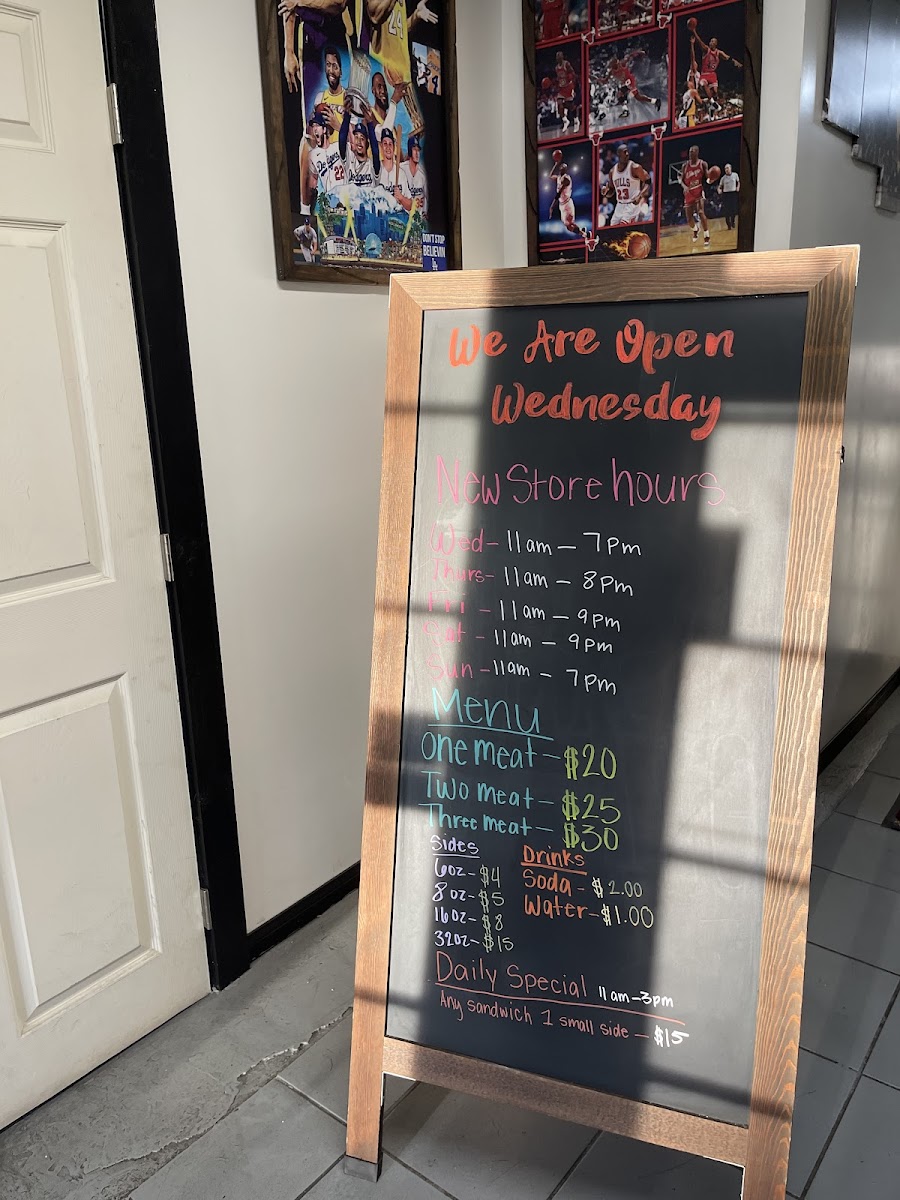 24
Dodgers
22
DON'T STOP
BELIEVIN
BULLS
23
We Are Open
Wednesday
New Store hours
Wed- 11am - 7pm
Thurs- 11am - 8pm
Fri - 11am - 9pm
Sat - 11am - 9pm
Sun -11am - 7pm
Menu
One meat - $20
Two meat - $25
Three meat - $30
Sides
6oz- $4
8oz- $5
16oz- $8
32oz- $15
Drinks
Soda - $2.00
Water- $1.00
Daily Special 11am-3pm
Any sandwich 1 small side - $15